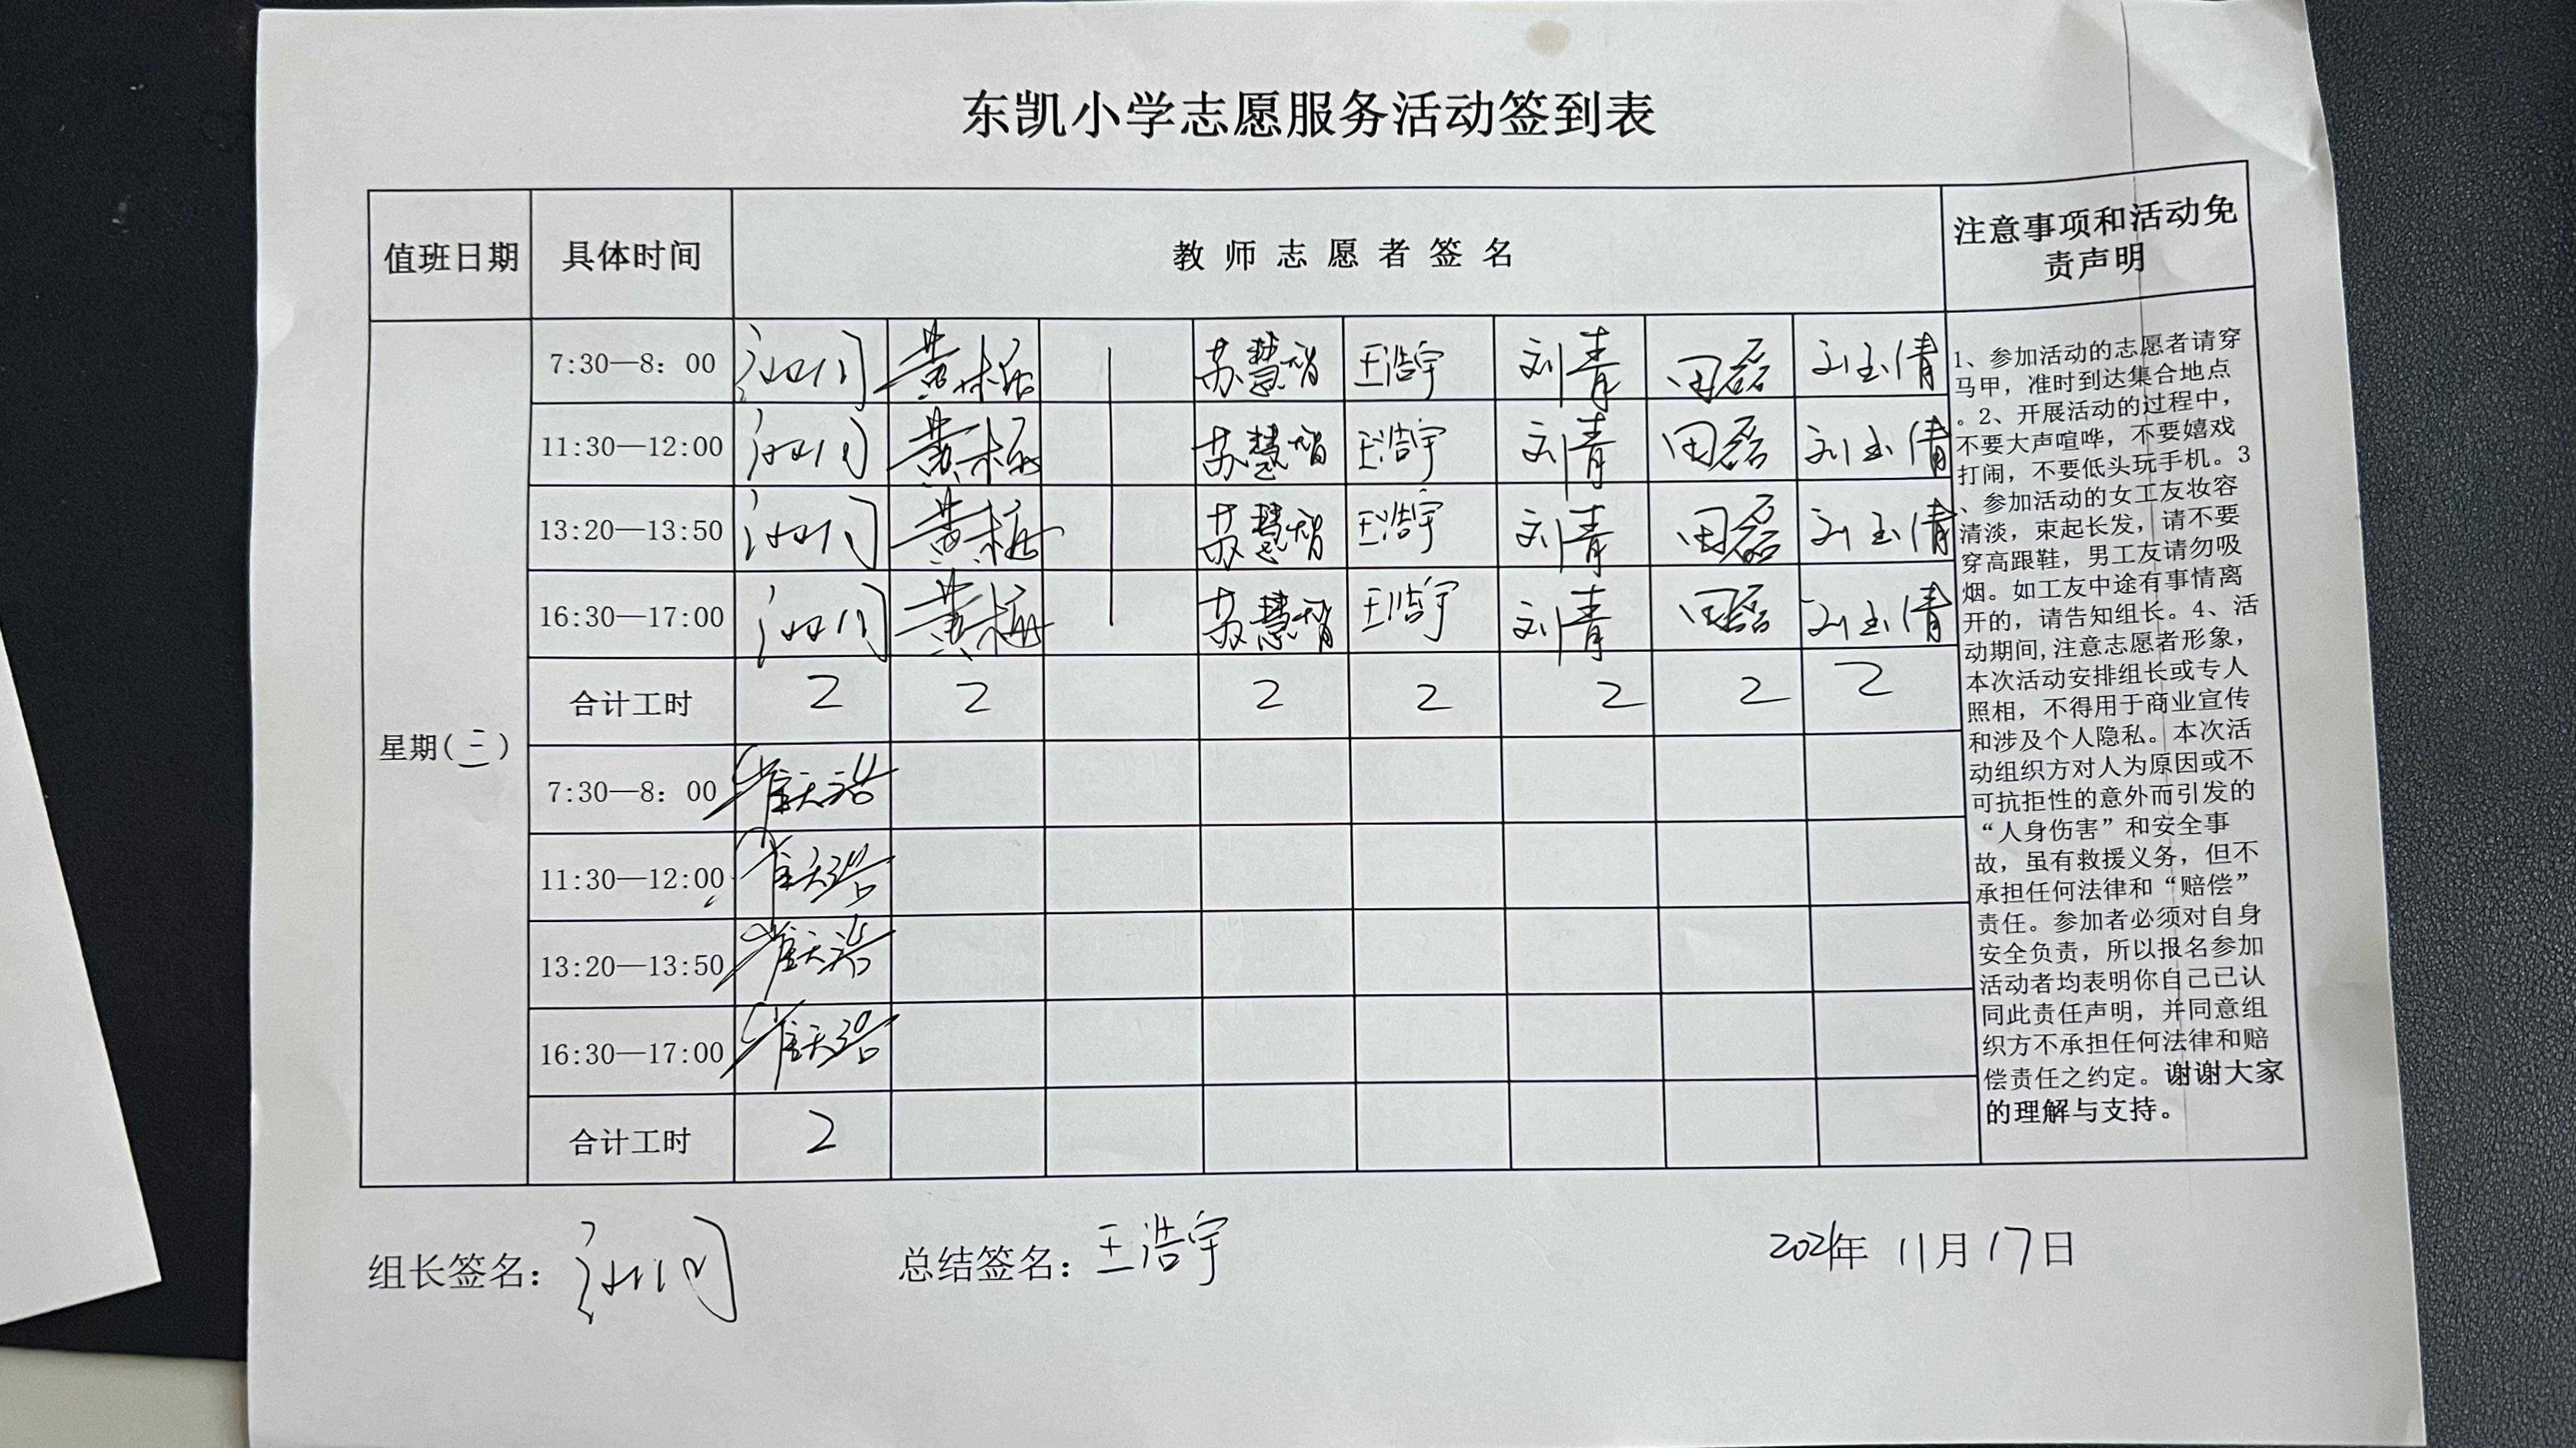 东凯小学志愿服务活动签到表
值班日期 具体时间 教师志愿者签名 注意事项和活动免
责声明
7:30—8：00 黄梅 苏慧智 王浩宇 刘青 田磊 刘玉倩
11:30—12:00 黄梅 苏慧智 王浩宇 刘青 田磊 刘玉倩
13:20—13:50 黄梅 苏慧智 王浩宇 刘青 田磊 刘玉倩
16:30—17:00 黄梅 苏慧智 王浩宇 刘青 田磊 刘玉倩
合计工时 2 2 2 2 2 2 2
星期(三)
7:30—8：00 崔天浩
11:30—12:00 崔天浩
13:20—13:50 崔天浩
16:30—17:00 崔天浩
合计工时 2
1、参加活动的志愿者请穿
马甲，准时到达集合地点
。2、开展活动的过程中，
不要大声喧哗，不要嬉戏
打闹，不要低头玩手机。3
、参加活动的女工友妆容
清淡，束起长发，请不要
穿高跟鞋，男工友请勿吸
烟。如工友中途有事情离
开的，请告知组长。4、活
动期间,注意志愿者形象，
本次活动安排组长或专人
照相，不得用于商业宣传
和涉及个人隐私。本次活
动组织方对人为原因或不
可抗拒性的意外而引发的
“人身伤害”和安全事
故，虽有救援义务，但不
承担任何法律和“赔偿”
责任。参加者必须对自身
安全负责，所以报名参加
活动者均表明你自己已认
同此责任声明，并同意组
织方不承担任何法律和赔
偿责任之约定。谢谢大家
的理解与支持。
组长签名： 总结签名：王浩宇 2021年 11月17日